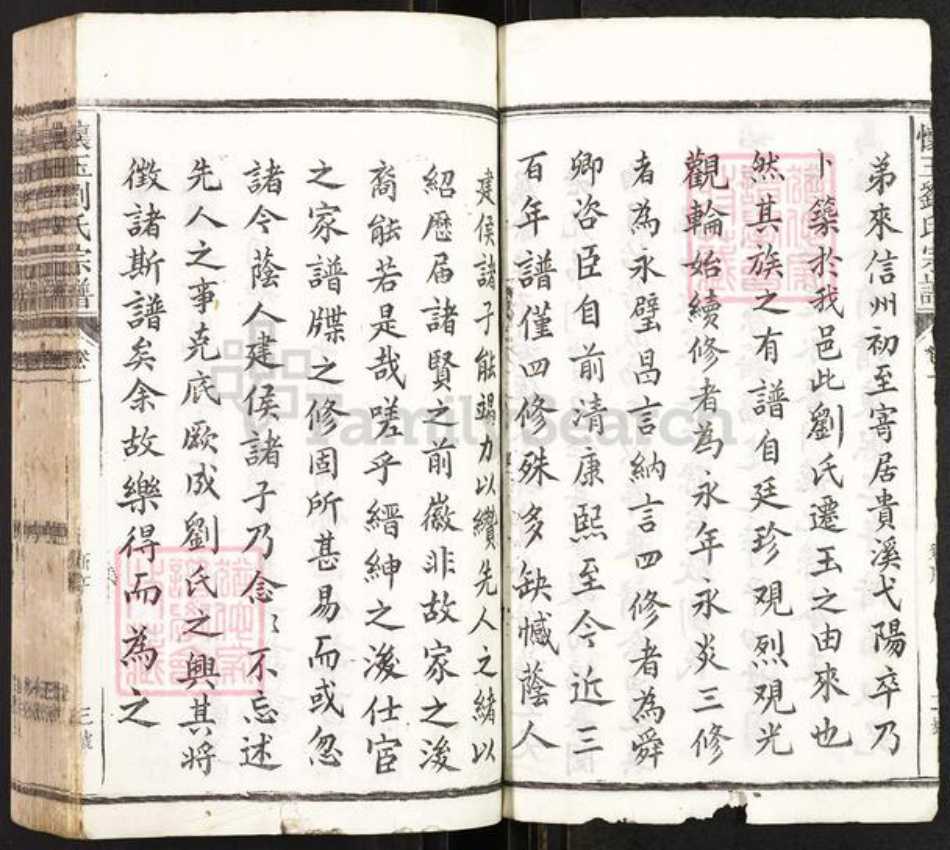 弟來信州初至寄居貴溪弋陽卒乃
卜築於我邑此劉氏遷玉之由來也
然其族之有譜自廷珍觀烈觀光
觀輪始續修者為永年永炎三修
者為永璧昌言納言四修者為舜
卿咨臣自前清康熙至今近三
百年譜僅四修殊多缺憾蔭人
建侯諸子能竭力以纘先人之緒以
紹歷届諸賢之前徽非故家之後
裔能若是哉嗟乎縉紳之後仕宦
之家譜牒之修固所甚易而或忽
諸今蔭人建侯諸子乃念〻不忘述
先人之事克底厥成劉氏之興其將
徵諸斯譜矣余故樂得而為之
懷玉劉氏宗譜
三號
FamilySearch